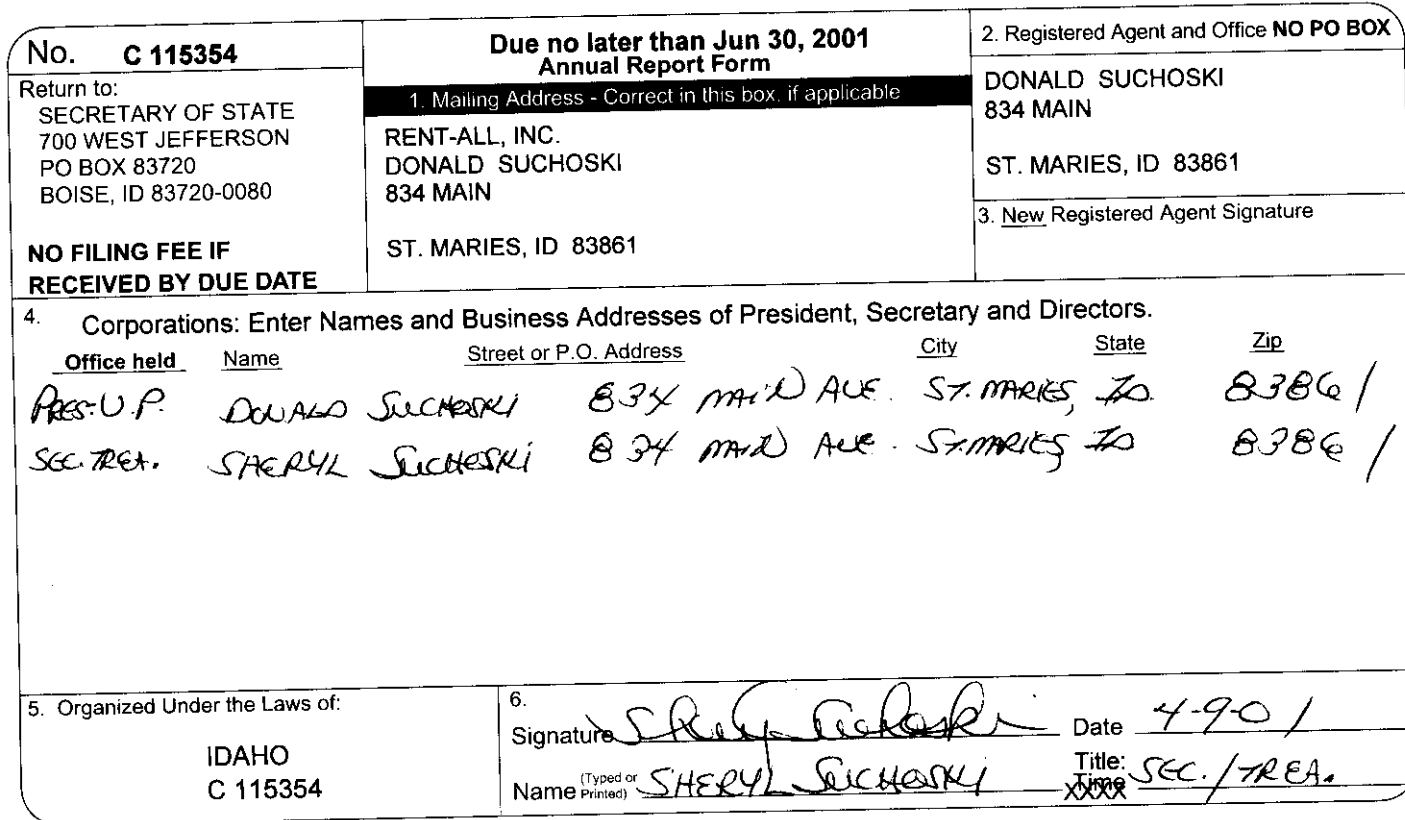 No. C 115354
Return to:
SECRETARY OF STATE
700 WEST JEFFERSON
PO BOX 83720
BOISE, ID 83720-0080
NO FILING FEE IF
RECEIVED BY DUE DATE
Due no later than Jun 30, 2001
Annual Report Form
1. Mailing Address - Correct in this box, if applicable
RENT-ALL, INC.
DONALD SUCHOSKI
834 MAIN
ST. MARIES, ID 83861
2. Registered Agent and Office NO PO BOX
DONALD SUCHOSKI
834 MAIN
ST. MARIES, ID 83861
3. New Registered Agent Signature
4. Corporations: Enter Names and Business Addresses of President, Secretary and Directors.
Office held Name Street or P.O. Address City State Zip
PRES-V.P. DONALD SUCHOSKI 834 MAIN AVE. ST. MARIES, ID. 83861
SEC. TREA. SHERYL SUCHOSKI 834 MAIN AVE. ST. MARIES, ID 83861
5. Organized Under the Laws of:
IDAHO
C 115354
6.
Signature Sheryl Suchoski Date 4-9-01
Name (Typed or Printed) SHERYL SUCHOSKI Title: SEC./TREA.
Time